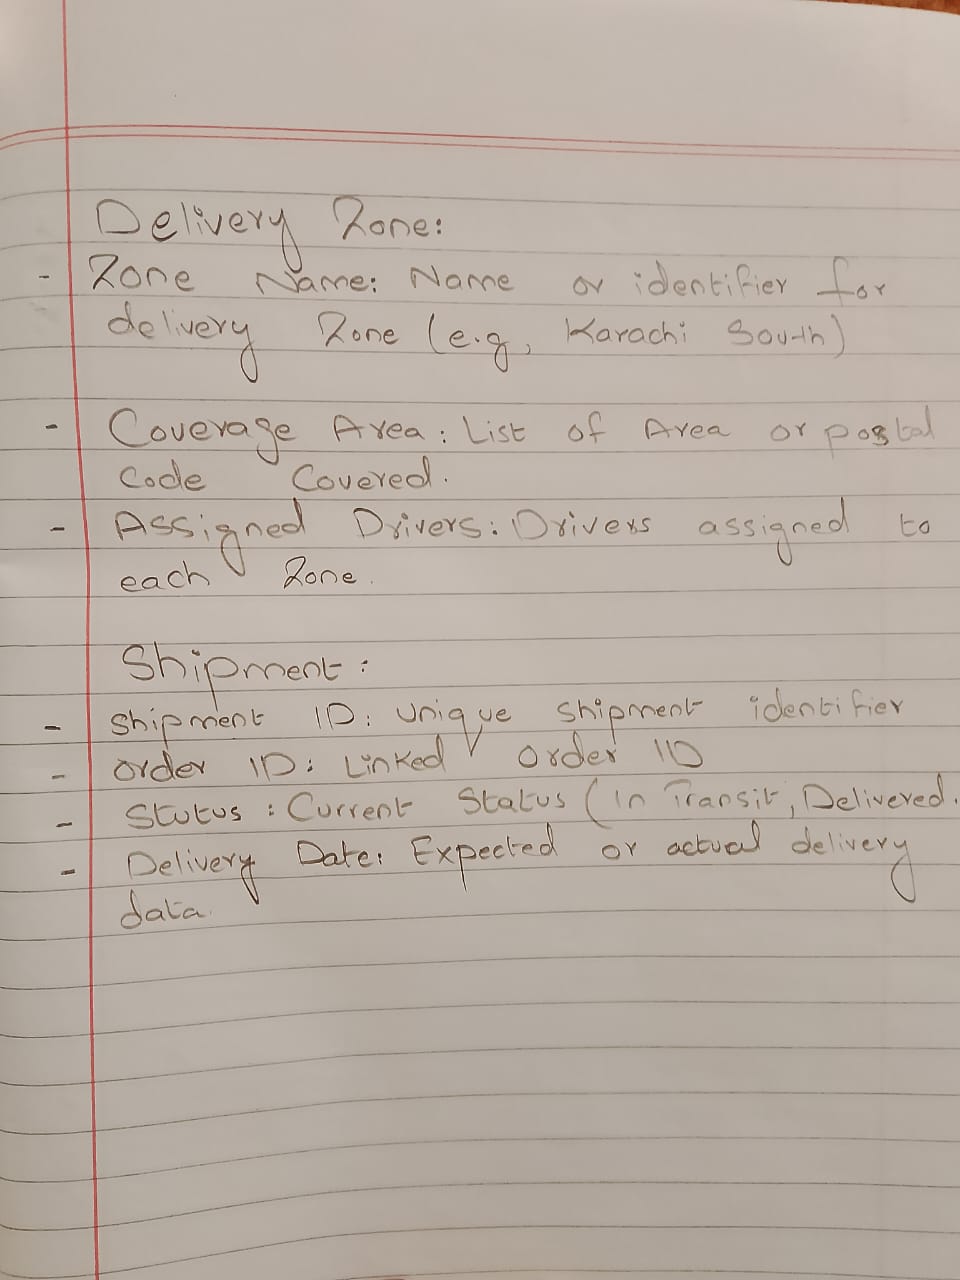 Delivery Zone:
- Zone Name: Name or identifier for
delivery Zone (e.g, Karachi South)
- Coverage Area: List of Area or postal
Code Covered.
- Assigned Drivers: Drivers assigned to
each Zone.
Shipment:
- Shipment ID: Unique Shipment identifier
- Order ID: Linked Order ID
- Stutus: Current Status (In Transit, Delivered.
- Delivery Date: Expected or actual delivery
data.